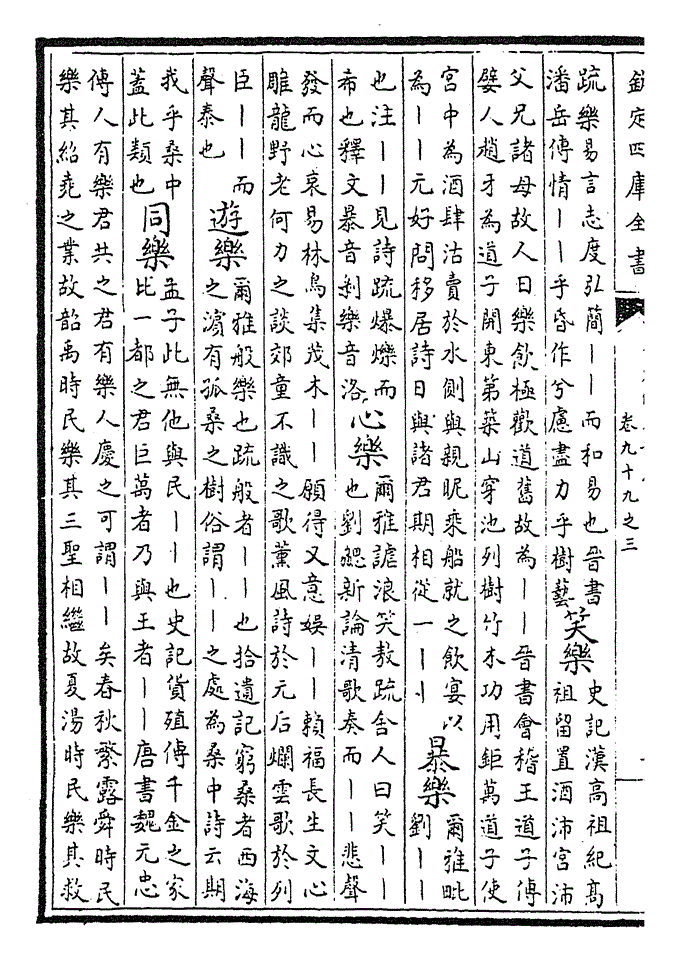 欽定四庫全書
卷九十九之三
疏樂易言志度弘簡丨丨而和易也晉書
潘岳傳情丨丨乎昏作兮慮盡力乎樹藝
笑樂
史記漢高祖紀高
祖留置酒沛宮沛
父兄諸母故人日樂飲極歡道舊故為丨丨晉書會稽王道子傳
嬖人趙牙為道子開東第築山穿池列樹竹木功用鉅萬道子使
宮中為酒肆沽賣於水側與親昵乘船就之飲宴以
為丨丨元好問移居詩日與諸君期相從一丨丨
暴樂
爾雅毗
劉丨丨
也注丨丨見詩疏爆爍而
希也釋文暴音剝樂音洛
心樂
爾雅謔浪笑敖疏舍人曰笑丨丨
也劉勰新論清歌奏而丨丨悲聲
發而心哀易林鳥集茂木丨丨願得又意娛丨丨賴福長生文心
雎龍野老何力之談郊童不識之歌薰風詩於元后爛雲歌於列
臣丨丨而
聲泰也
遊樂
爾雅般樂也疏般者丨丨也拾遺記窮桑者西海
之濵有孤桑之樹俗謂丨丨之處為桑中詩云期
我乎桑中
蓋此類也
同樂
孟子此無他與民丨丨也史記貨殖傳千金之家
比一都之君巨萬者乃與王者丨丨唐書魏元忠
傳人有樂君共之君有樂人慶之可謂丨丨矣春秋繁露舜時民
樂其紹堯之業故韶禹時民樂其三聖相繼故夏湯時民樂其救